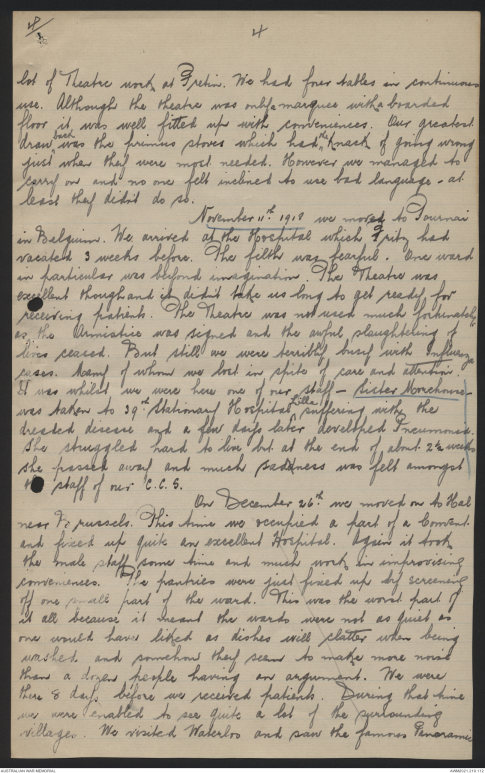 4
lot of Theatre work at Fretin. We had four tables in continuous
use. Although the theatre was only a marquee with a boarded
floor it was well fitted up with conveniences. Our greatest
draw back was the primus stoves which had the knack of going wrong
just when they were most needed. However we managed to
carry on and no one felt inclined to use bad language – at
least they didn't do so.
November 11th 1918 we moved to Tournai
in Belgium. We arrived at the Hospital which Fritz had
vacated 3 weeks before. The filth was fearful. One ward
in particular was beyond imagination. The Theatre was
excellent though and it didn't take us long to get ready for
receiving patients. The Theatre was not used much fortunately
as the Armistice was signed and the awful slaughtering of
lives ceased. But still we were terribly busy with Influenza
cases. Many of whom we lost in spite of care and attention.
It was whilst we were here one of our staff – Sister Morehouse –
was taken to 39th Stationary Hospital Lille, suffering with the
dreaded disease and a few days later developed Pneumonia.
She struggled hard to live but at the end of about 2½ weeks
she passed away and much saddness was felt amongst
the staff of our C.C.S.
On December 26th we moved on to Hal
near Brussels. This time we occupied a part of a Convent
and fixed up quite an excellent Hospital. Again it took
the male staff some time and much work in improvising
conveniences. The pantries were just fixed up by screening
off one small part of the ward. This was the worst part of
it all because it meant the wards were not as quiet as
one would have liked as dishes will clatter when being
washed and somehow they seem to make more noise
than a dozen people having an argument. We were
there 8 days before we received patients. During that time
we were enabled to see quite a lot of the surrounding
villages. We visited Waterloo and saw the famous Panoramic
AUSTRALIAN WAR MEMORIAL